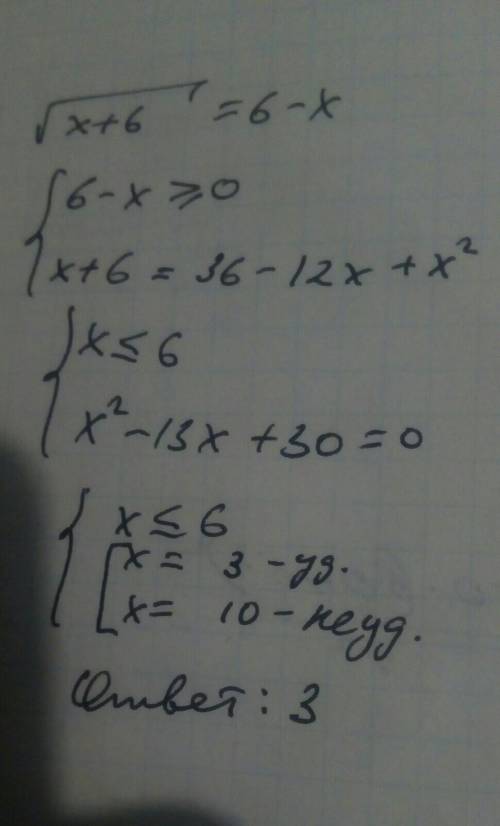 √x+6 = 6-x
{ 6-x ≥ 0
x+6 = 36-12x+x²
{ x ≤ 6
x²-13x+30=0
{ x ≤ 6
[ x= 3 - уд.
x= 10 - неуд.
Ответ: 3